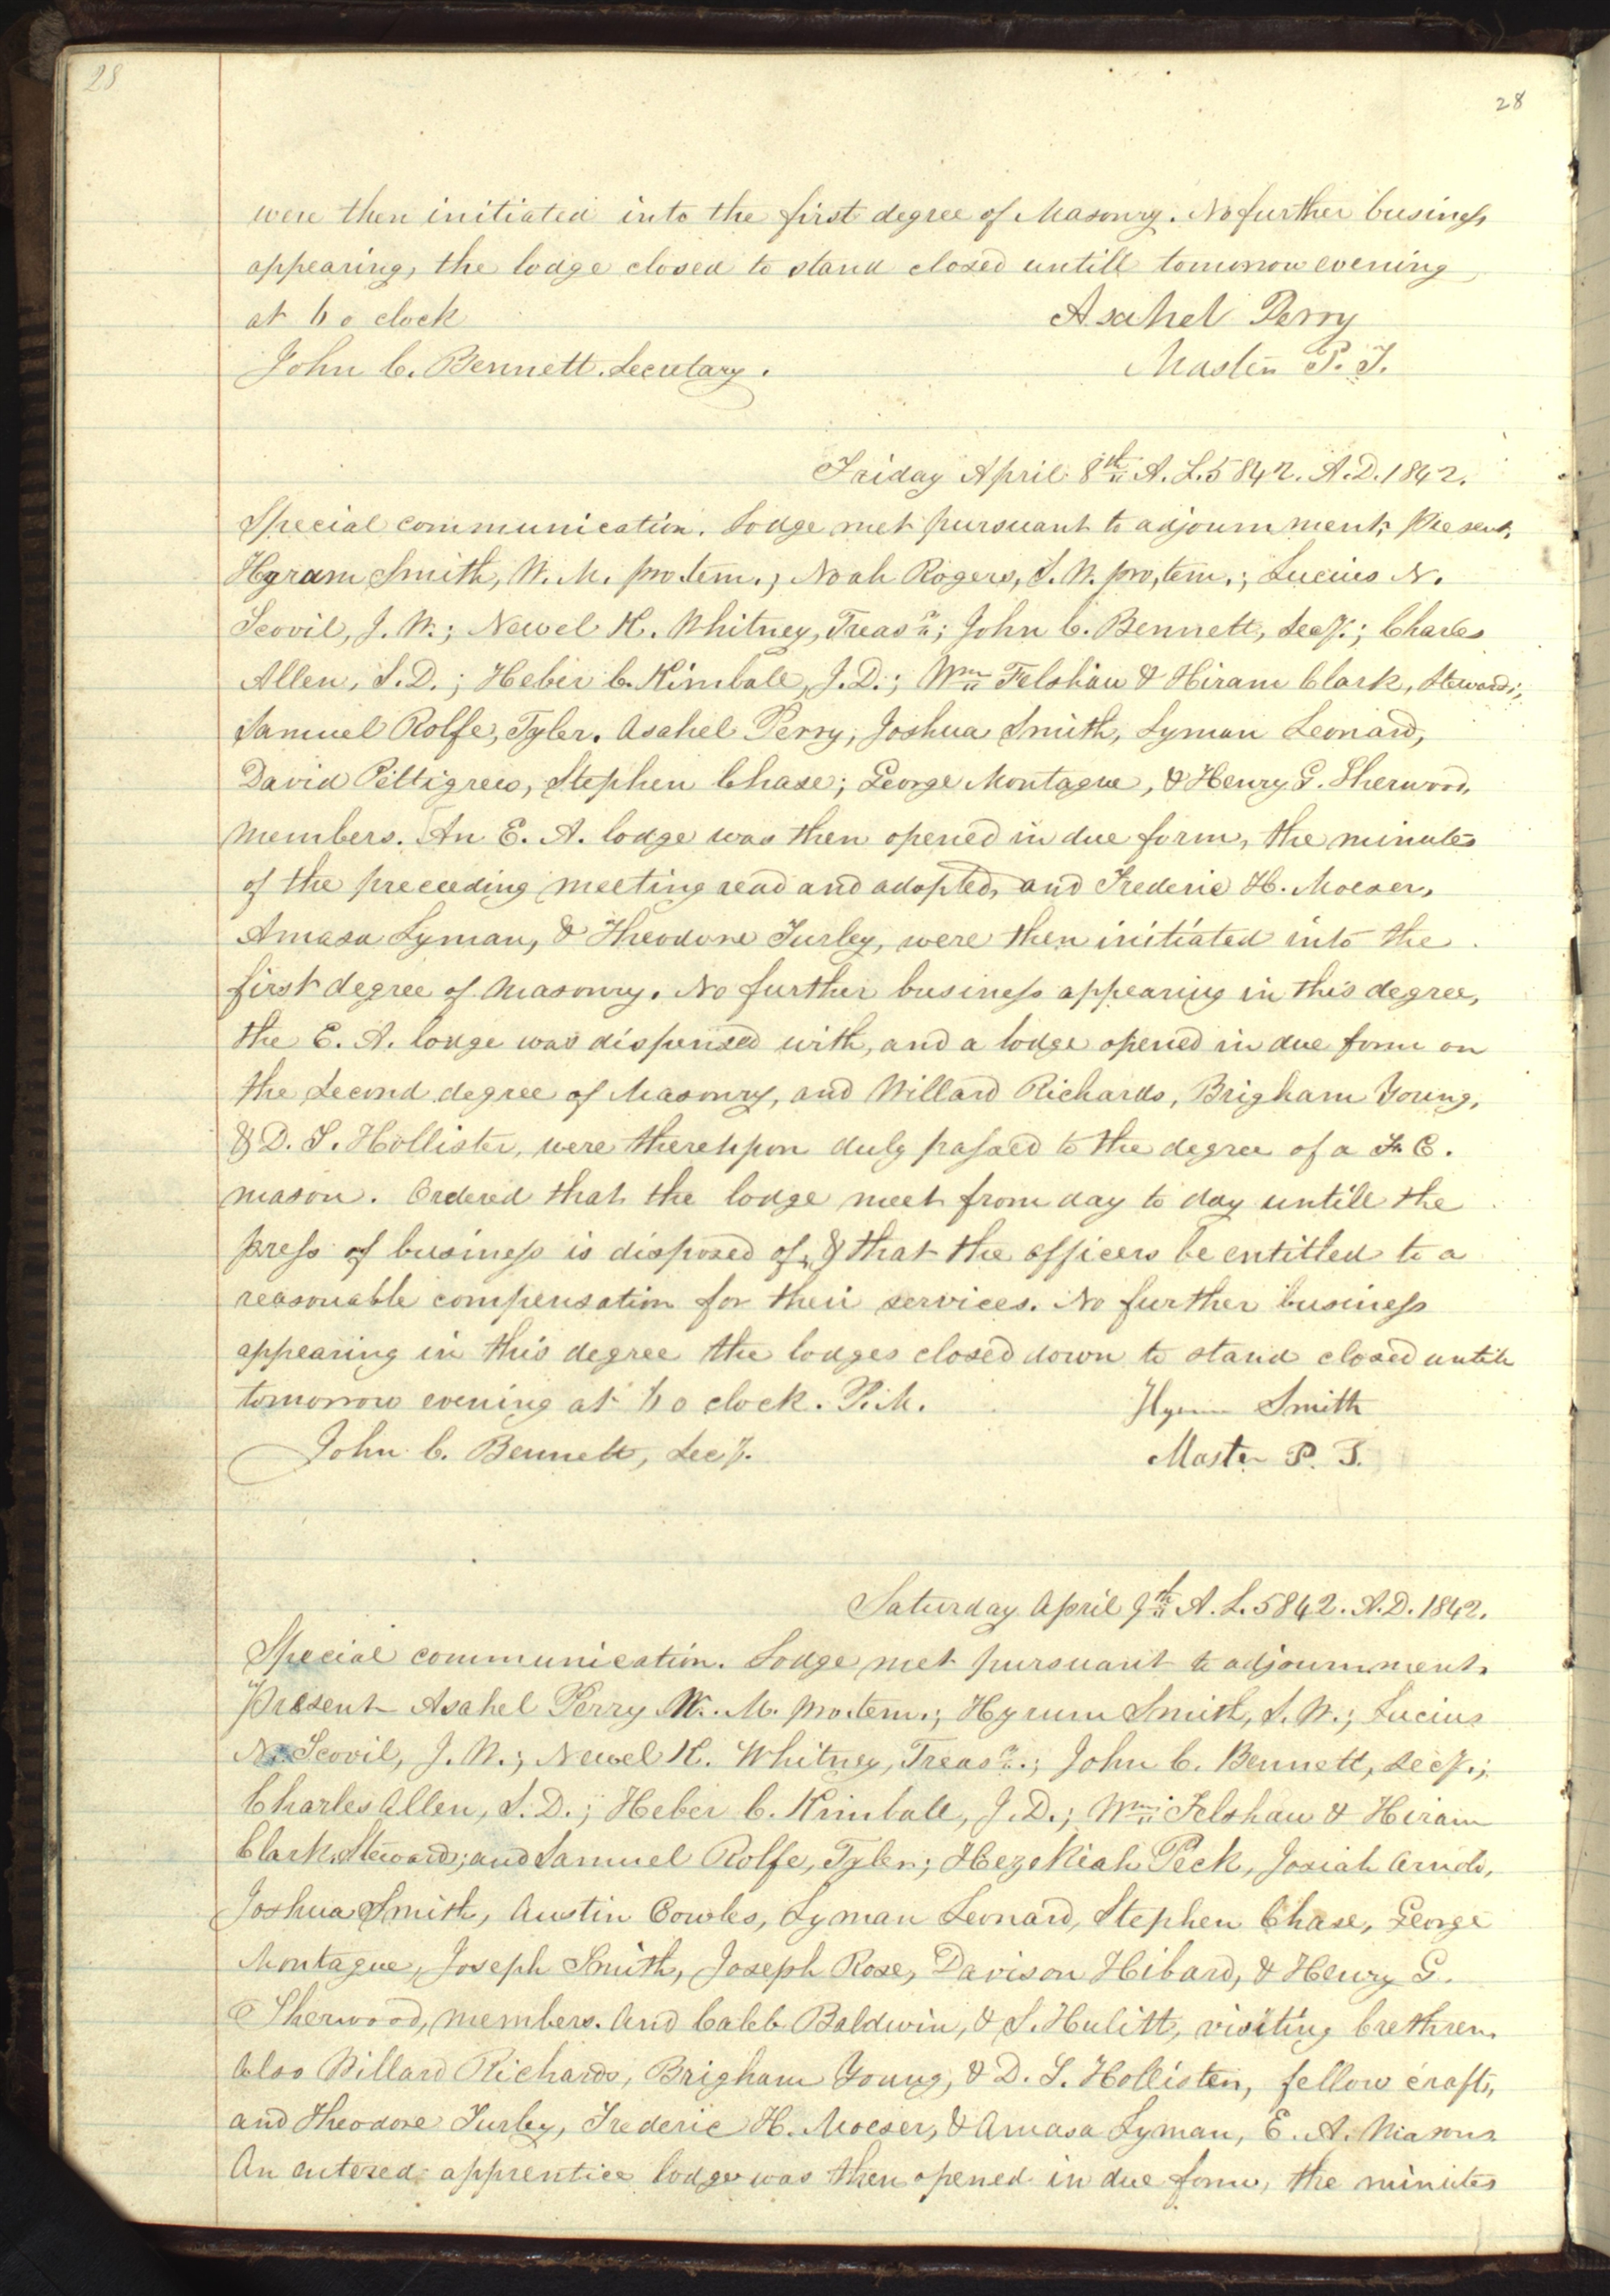 28
28
were then initiated into the first degree of Masonry. No further business
appearing, the lodge closed to stand closed untill tomorrow evening
at 6 o clock
Asahel Perry
John C. Bennett. Secretary.
Master P. T.
Friday April 8th A. L. 5842. A. D. 1842.
Special communication. Lodge met pursuant to adjournment; Present,
Hyrum Smith, W. M. pro. tem.; Noah Rogers, S. W. pro, tem.; Lucius N.
Scovil, J. W.; Newel K. Whitney, Treasr; John C. Bennett, Secy.; Charles
Allen, S. D.; Heber C. Kimball, J. D.; Wm Felshaw & Hiram Clark, Stewards;
Samuel Rolfe, Tyler. Asahel Perry, Joshua Smith, Lyman Leonard,
David Pettigrew, Stephen Chase; George Montague, & Henry G. Sherwood,
members. An E. A. lodge was then opened in due form, the minutes
of the preceeding meeting read and adopted, and Frederic H. Moeser,
Amasa Lyman, & Theodore Turley, were then initiated into the
first degree of Masonry. No further business appearing in this degree,
the E. A. lodge was dispensed with, and a lodge opened in due form on
the Second degree of Masonry, and Willard Richards, Brigham Young,
& D. S. Hollister, were thereupon duly passed to the degree of a F. C.
mason. Ordered that the lodge meet from day to day untill the
press of business is disposed of, & that the officers be entitled to a
reasonable compensation for their services. No further business
appearing in this degree the lodges closed down to stand closed untill
tomorrow evening at 6 o clock. P. M.
Hyrum Smith
John C. Bennett, Secy.
Master P. T.
Saturday April 9th A. L. 5842. A. D. 1842.
Special communication. Lodge met pursuant to adjournment.
Present Asahel Perry W. M. pro. tem.; Hyrum Smith, S. W.; Lucius
N. Scovil, J. W.; Newel K. Whitney, Treasr.; John C. Bennett, Secy.;
Charles Allen, S. D.; Heber C. Kimball, J. D.; Wm Felshaw & Hiram
Clark, Stewards; and Samuel Rolfe, Tyler; Hezekiah Peck, Josiah Arnold,
Joshua Smith, Austin Cowles, Lyman Leonard, Stephen Chase, George
Montague, Joseph Smith, Joseph Rose, Davison Hibard, & Henry G.
Sherwood, members. And Caleb Baldwin, & S. Hulitt, visiting brethren.
Also Willard Richards, Brigham Young, & D. S. Hollister, fellow crafts,
and Theodore Turley, Frederic H. Moeser, & Amasa Lyman, E. A. Masons.
An entered apprentice lodge was then opened in due form, the minutes